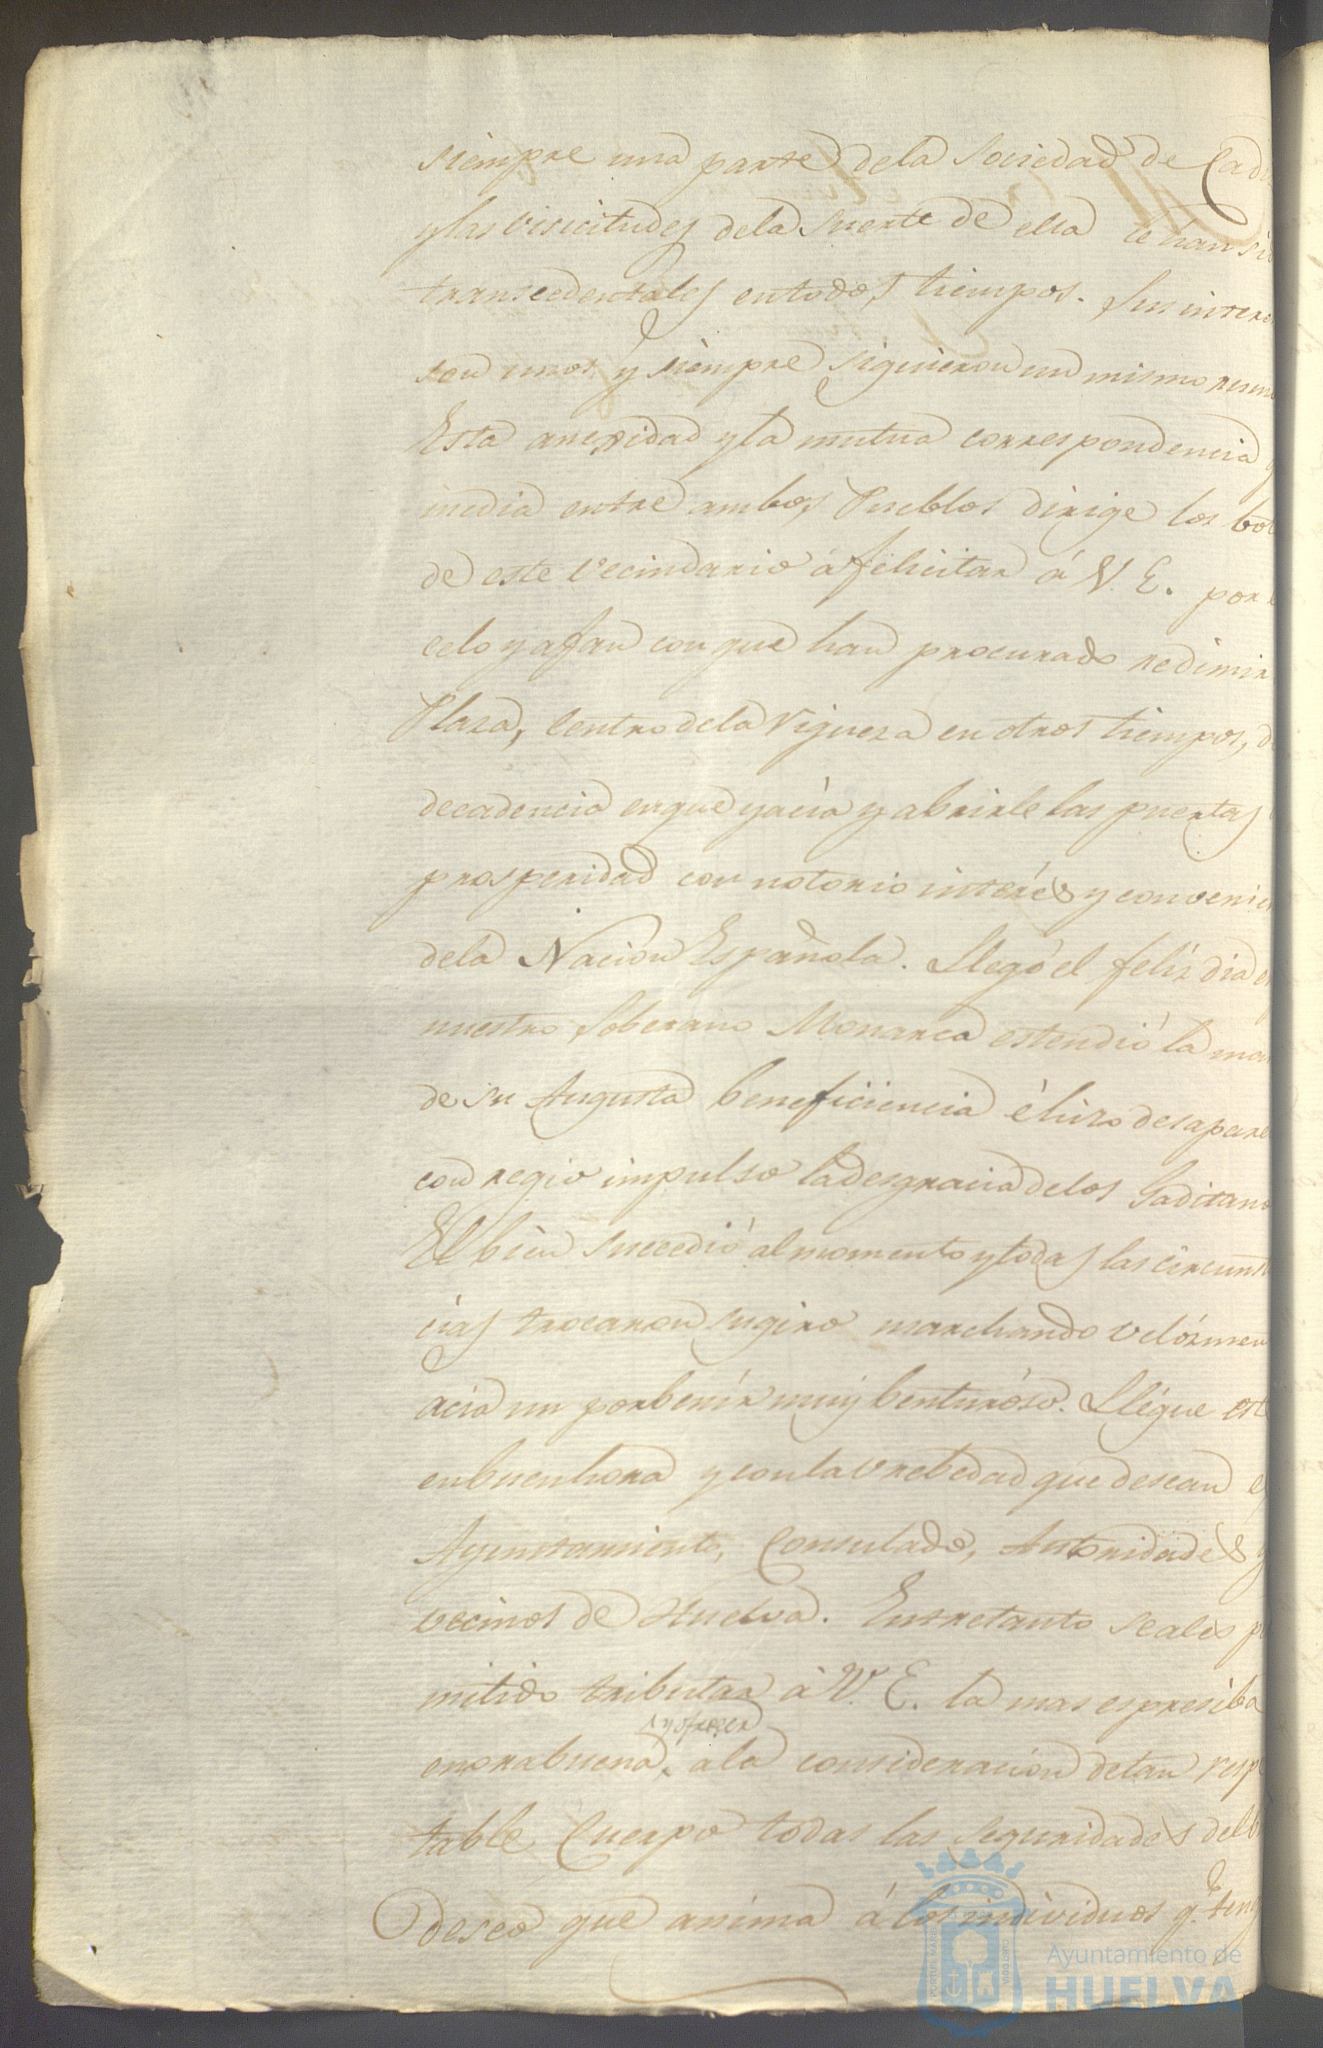 siempre una parte dela Sociedad de Cadi
y las visicitudes dela Suerte de ella le han si
transcedentales entodos tiempos. Sus intere
son unos, y siempre siguieron un mismo
Esta anexidad y la mutua correspondencia q
media entre ambos Pueblos dirige los vot
de este vecindario á felicitar á V. E. por e
celo y afan con que han procurado redimir
Plaza, Centro dela riqueza en otros tiempos, d
decadencia enque yacia y abrirle las puertas
prosperidad con notorio interés y convenie
dela Nacion Española. Llegó el felíz dia e
nuestro Soberano Monarca estendió la ma
de su Augusta beneficiencia é hizo desapare
con regio impulso la desgracia delos Gaditano
El bien sucedió al momento y todas las circunst
cias trocaron su giro marchando velózmen
acia un porbenír muy benturóso. Llégue est
enbuenhora y con la vrebedad que desean e
Ayuntamiento, Consulado, Autoridades y
vecinos de Huelva. Entretanto seales pe
mitido tributar á V. E. la mas espresiba
y ofrecer
enorabuena, a la consideracion de tan resp
table Cuerpo todas las seguridades del b
deseo que anima á los individuos q.e teng
Ayuntamiento de
HUELVA